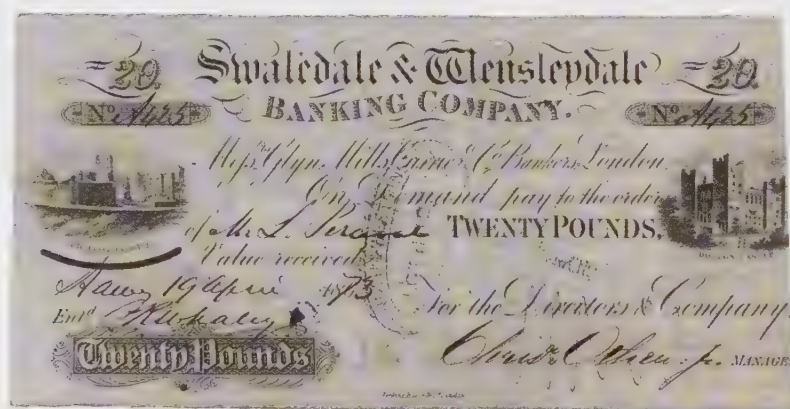 =20. Swaledale & Wensleydale =20.
Nº A425 BANKING COMPANY. Nº A425
Messrs Glyn, Mills, Currie & Co. Bankers London
On Demand pay to the order
of Mr. L. TWENTY POUNDS,
Value received
Hawes 19 April 1873 For the Directors & Company
Entd
Twenty Pounds Chrisr Other Jr. MANAGER